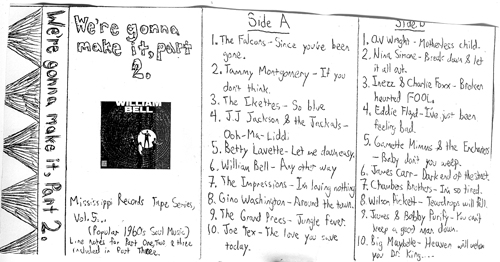 We're gonna make it, Part 2.
We're gonna
make it, part
2.
WILLIAM
BELL
Mississippi Records Tape Series,
Vol. 5...
(Popular 1960s Soul Music)
Line notes for Part One, Two & Three
included in Part Three.
Side A
1. The Falcons - Since you've been
gone.
2. Tammy Montgomery - If you
don't think.
3. The Ikettes - So blue
4. J.J Jackson & the Jackals -
Ooh-Ma-Liddi
5. Betty Lavette - Let me down easy.
6. William Bell - Any other way
7. The Impressions - I'm loving nothing
8. Gino Washington - Around the town.
9. The Grand Prees - Jungle fever.
10. Joe Tex - The love you save
today.
Side B
1. O.V Wright - Motherless child.
2. Nina Simone - Break down & let
it all out.
3. Inezz & Charlie Foxx - Broken
hearted FOOL.
4. Eddie Floyd - I've just been
feeling bad.
5. Garnette Mimms & the Enchanters
- Baby don't you weep.
6. James Carr - Dark end of the street.
7. Chambers Brothers - I'm so tired.
8. Wilson Pickett - Teardrops will fall.
9. James & Bobby Purify - You can't
keep a good man down.
10. Big Maybelle - Heaven will welcome
you Dr. King....